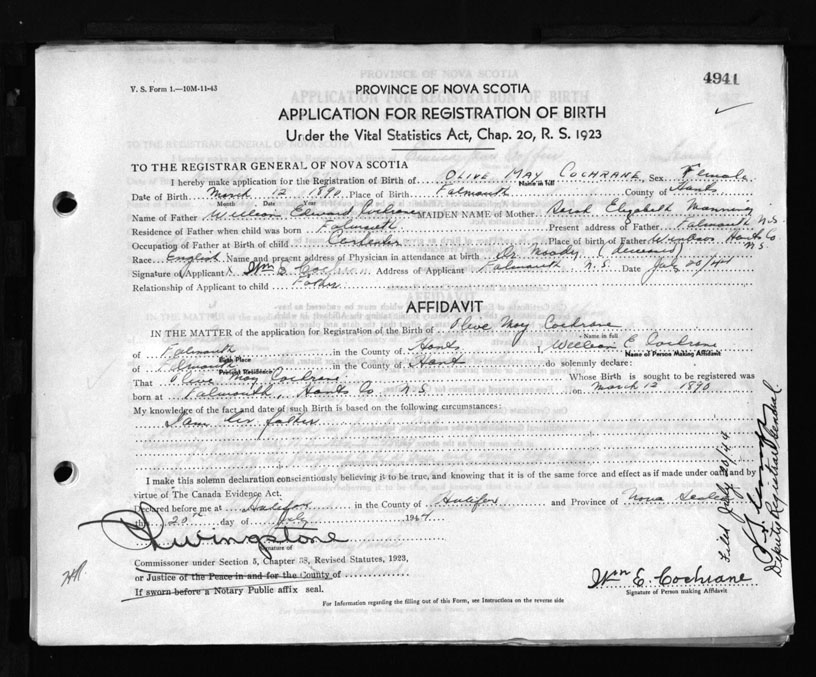 4941
V. S. Form 1.—10M-11-43
PROVINCE OF NOVA SCOTIA
APPLICATION FOR REGISTRATION OF BIRTH
Under the Vital Statistics Act, Chap. 20, R. S. 1923
TO THE REGISTRAR GENERAL OF NOVA SCOTIA
I hereby make application for the Registration of Birth of OLIVE MAY COCHRANE, Sex Female
Name in full
Date of Birth March 12 1890 Place of Birth Falmouth County of Hants
Month Date Year
Name of Father William Edward Cochrane MAIDEN NAME of Mother Sarah Elizabeth Manning
Residence of Father when child was born Falmouth Present address of Father Falmouth N.S
Occupation of Father at Birth of child Carpenter Place of birth of Father Windsor Hants Co N.S.
Race English Name and present address of Physician in attendance at birth Dr Moody (deceased)
Signature of Applicant X Wm E Cochran Address of Applicant Falmouth N.S. Date July 20/44
Relationship of Applicant to child Father
AFFIDAVIT
IN THE MATTER of the application for Registration of the Birth of Olive May Cochrane
Name in full
of Falmouth in the County of Hants I, William E Cochrane
Birth Place Name of Person Making Affidavit
of Falmouth in the County of Hant do solemnly declare:
Present Residence
That Olive May Cochrane Whose Birth is sought to be registered was
born at Falmouth, Hants Co N.S. on March 12 1890
My knowledge of the fact and date of such Birth is based on the following circumstances:
I am her father
I make this solemn declaration conscientiously believing it to be true, and knowing that it is of the same force and effect as if made under oath and by
virtue of The Canada Evidence Act.
Declared before me at Halifax in the County of Halifax and Province of Nova Scotia
this 20th day of July 1944
Livingstone
Signature of
Commissioner under Section 5, Chapter 38, Revised Statutes, 1923,
or Justice of the Peace in and for the County of
If sworn before a Notary Public affix seal.
Wm E. Cochrane
Signature of Person making Affidavit
For Information regarding the filling out of this Form, see Instructions on the reverse side
Filed July 20/44
Deputy Registrar General